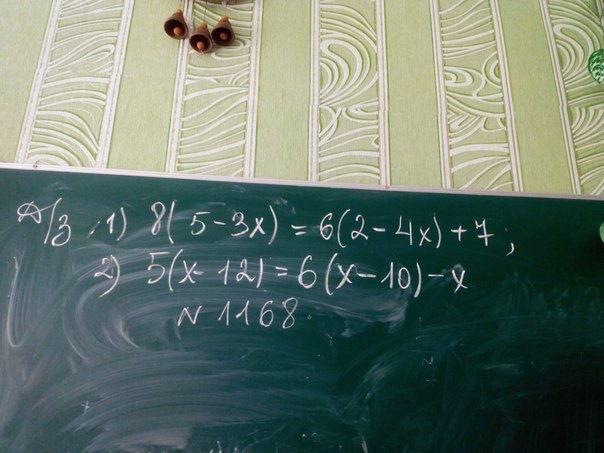 Д/З 1) 8(5-3x)=6(2-4x)+7;
2) 5(x-12)=6(x-10)-x
N 1168